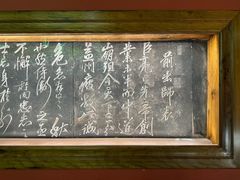 前出師表
臣亮言先帝創
業未半而中道
崩殂今天下三分
益州疲敝此誠
危急存亡之秋
也然侍衛之臣
不懈於內忠志
士忘身於